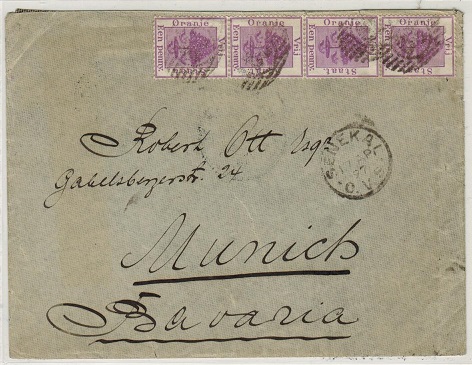 Oranje Vrij Staat Een penny.
Oranje Vrij Staat Een penny.
Oranje Vrij Staat Een penny.
Oranje Vrij Staat Een penny.
Robert Ott Esqre
Gabelsbergerstr. 24
SENEKAL
O.V.S
Munich
Bavaria